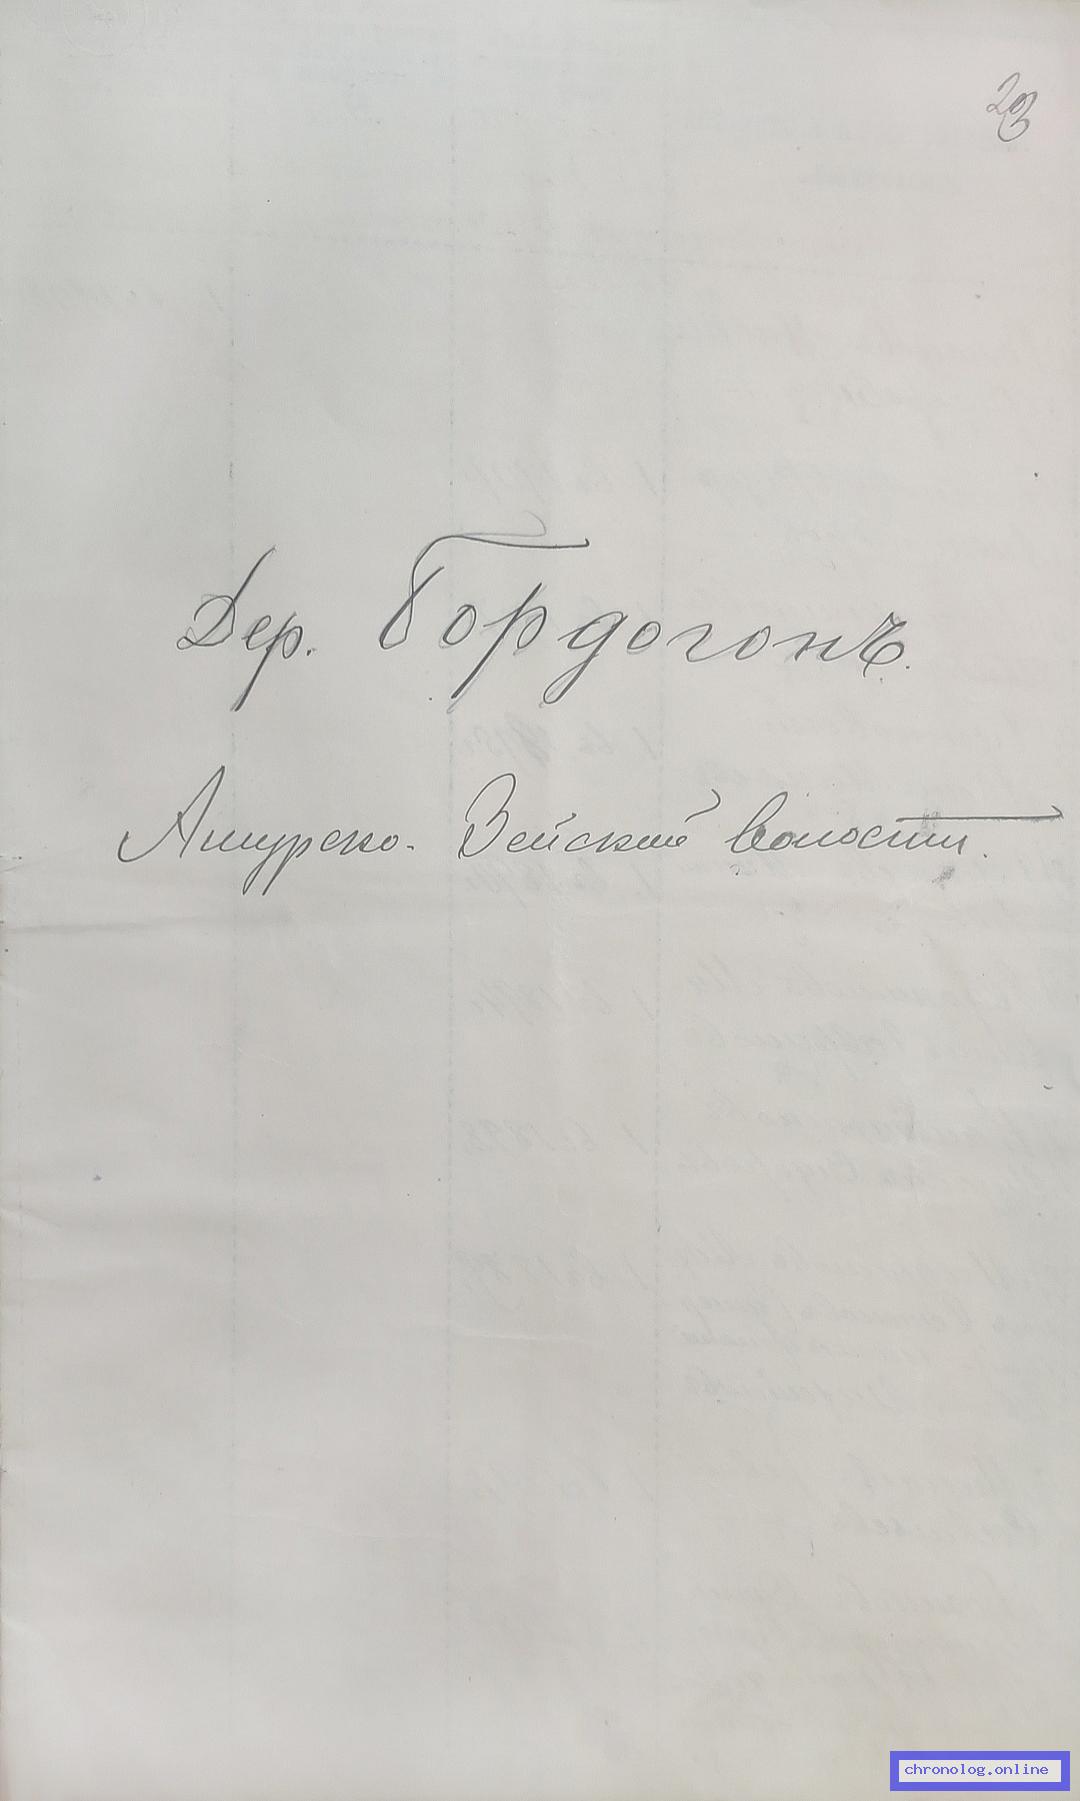 23
Дер. Бордогонъ.
Амурско-Зейской волости.
chronolog.online